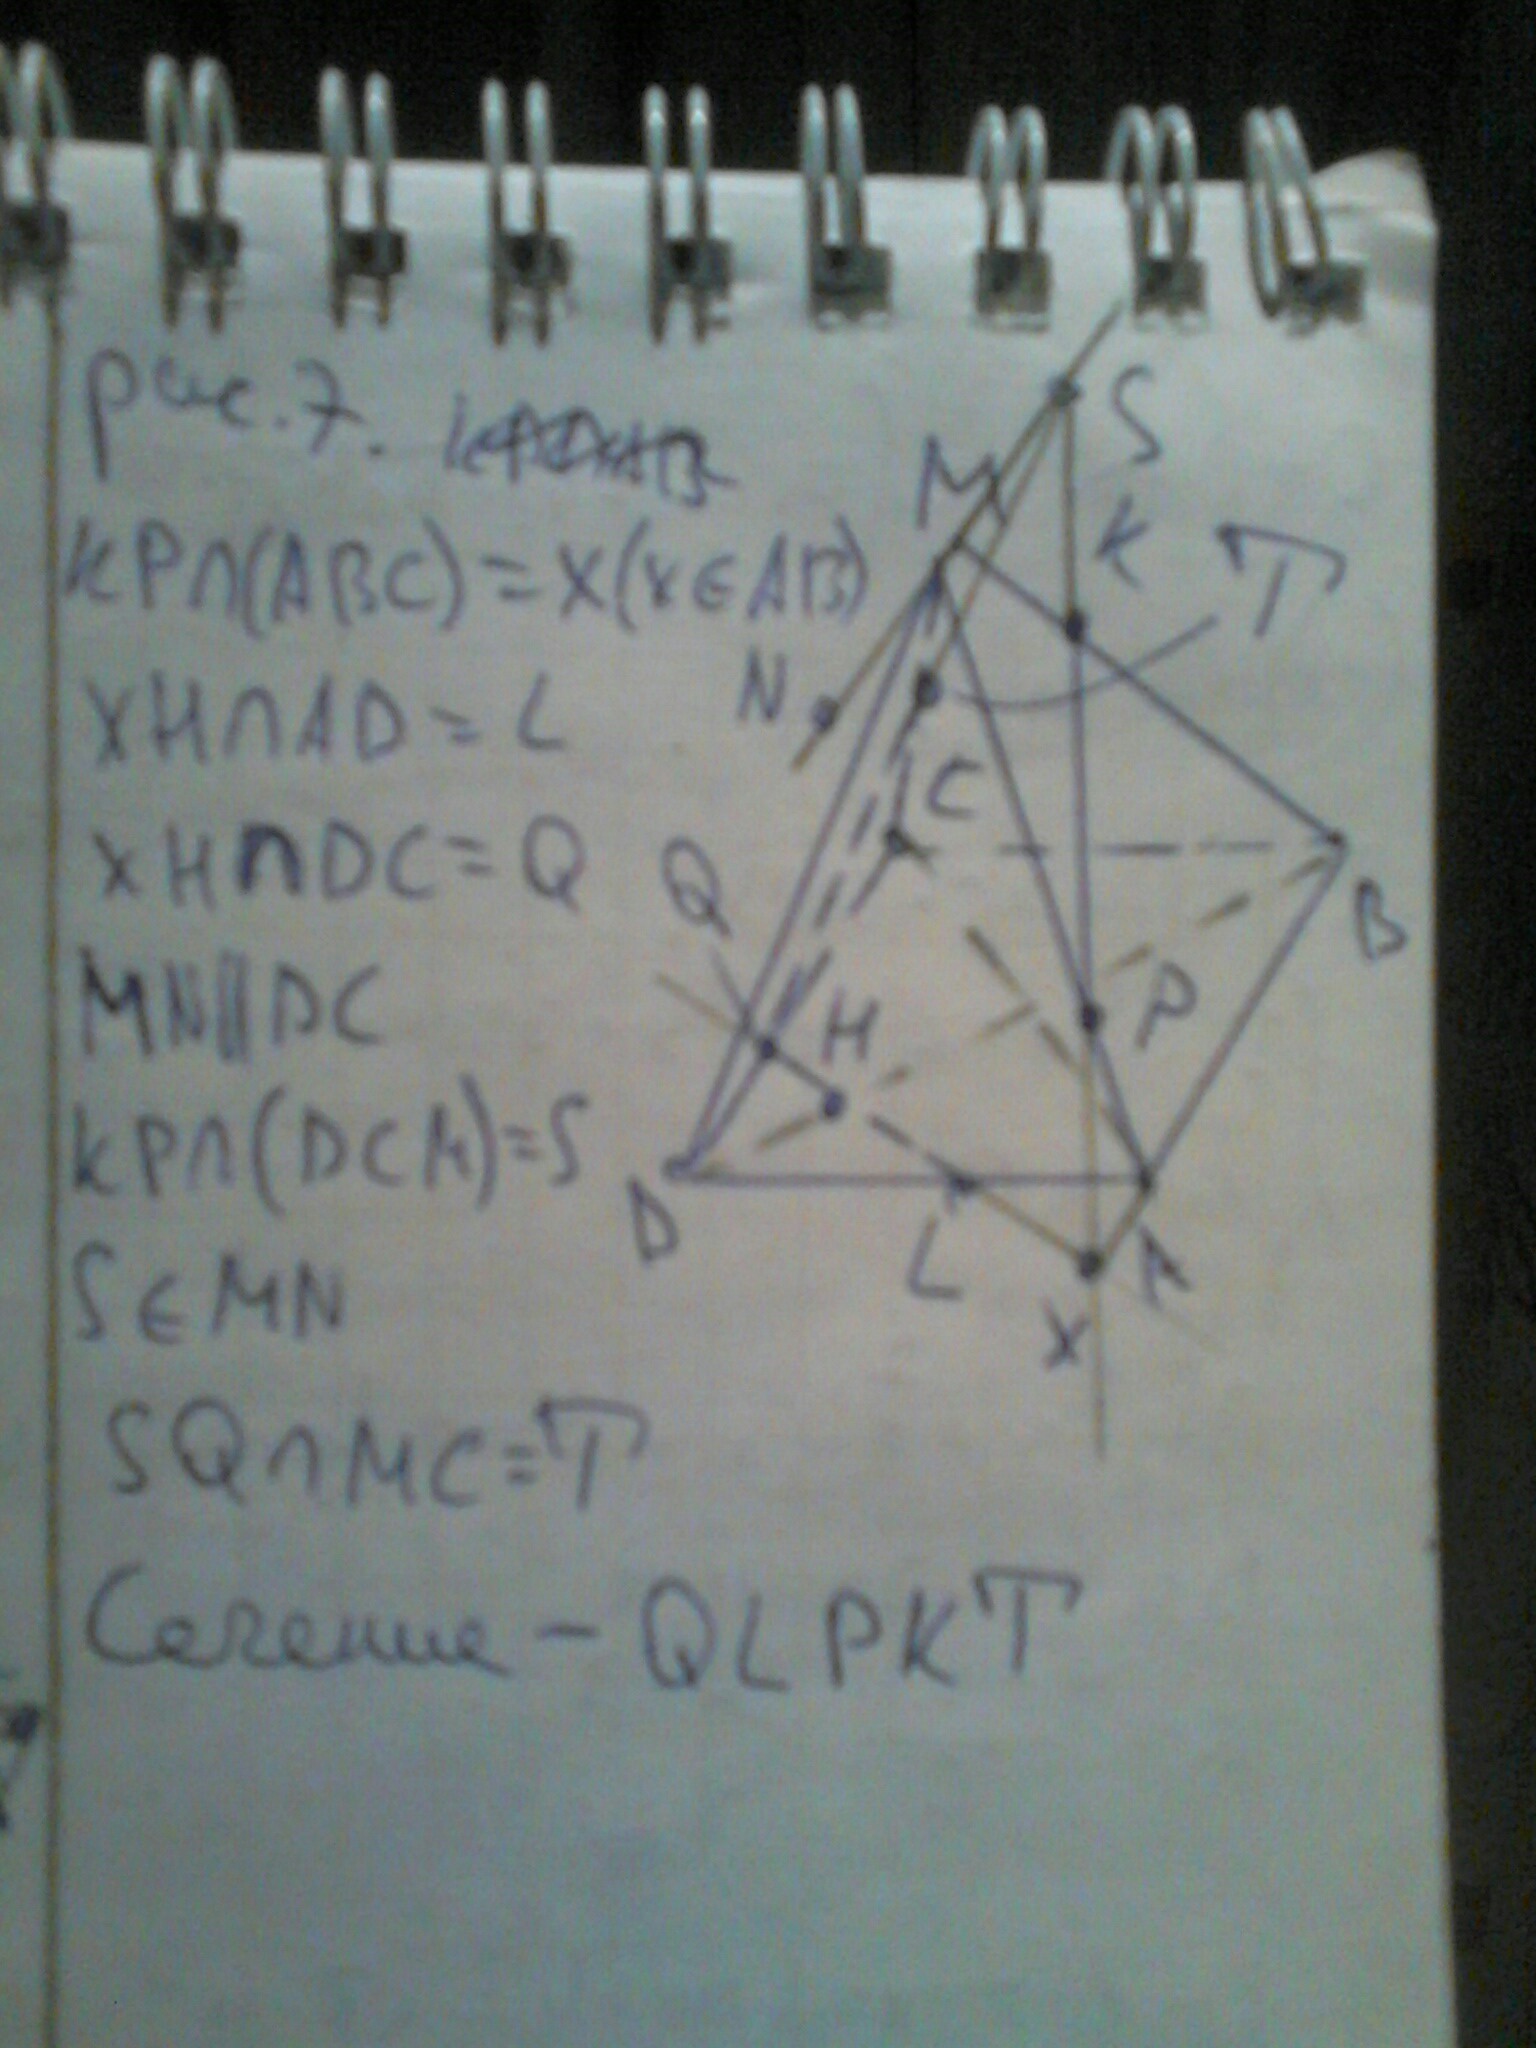 рис. 7.
KP∩(ABC)=X(X∈AB)
XH∩AD=L
XH∩DC=Q
MN||DC
KP∩(DCM)=S
S∈MN
SQ∩MC=T
Сечение – QLPKT
S
M
K
T
N
C
Q
B
H
P
D
L
A
X